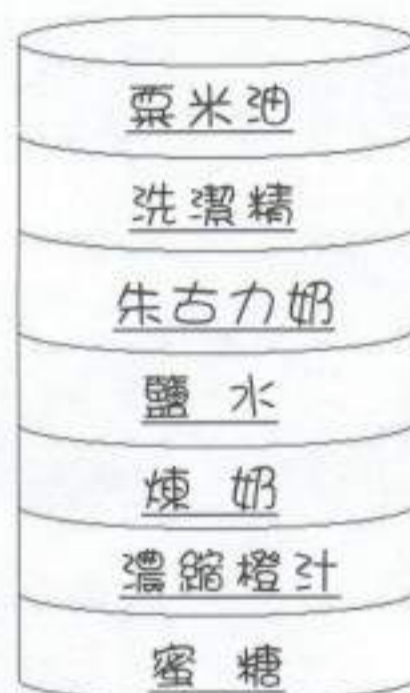 粟米油
洗潔精
朱古力奶
鹽 水
煉 奶
濃縮橙汁
蜜 糖